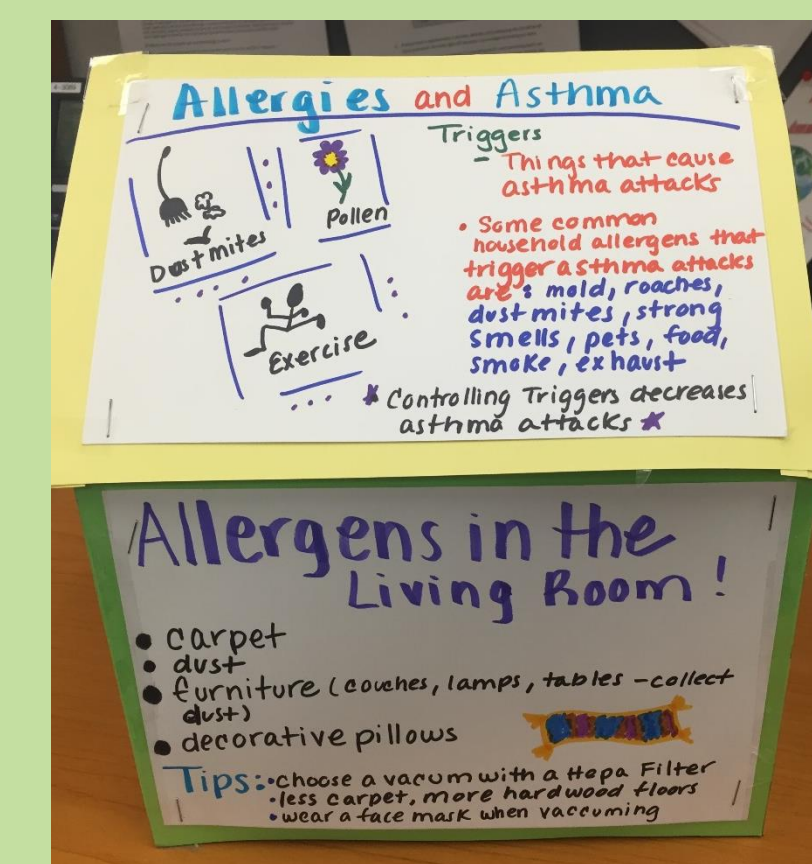 Allergies and Asthma
Dust mites
Pollen
Exercise
Triggers
- Things that cause
asthma attacks
• Some common
household allergens that
trigger asthma attacks
are: mold, roaches,
dust mites, strong
smells, pets, food,
smoke, exhaust
* Controlling Triggers decreases
asthma attacks *
Allergens in the
Living Room!
• carpet
• dust
• furniture (couches, lamps, tables - collect
dust)
• decorative pillows
Tips: • choose a vacum with a Hepa Filter
• less carpet, more hardwood floors
• wear a face mask when vaccuming